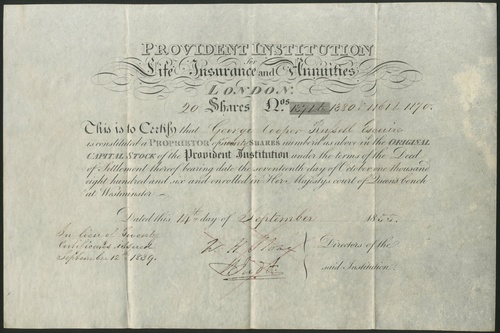 PROVIDENT INSTITUTION
for
Life Insurance and Annuities
LONDON.
20 Shares Nos
This is to Certify that George Cooper Esquire
is constituted a PROPRIETOR of Twenty SHARES number'd as above in the ORIGINAL
CAPITAL STOCK of the Provident Institution under the terms of the Deed
of Settlement thereof bearing date the seventeenth day of October one thousand
eight hundred and six and enrolled in Her Majestys court of Queens Bench
at Westminster
Dated this 14th day of September 1855.
In lieu of Twenty
Certificates
September 12th 1839.
Directors of the
said Institution